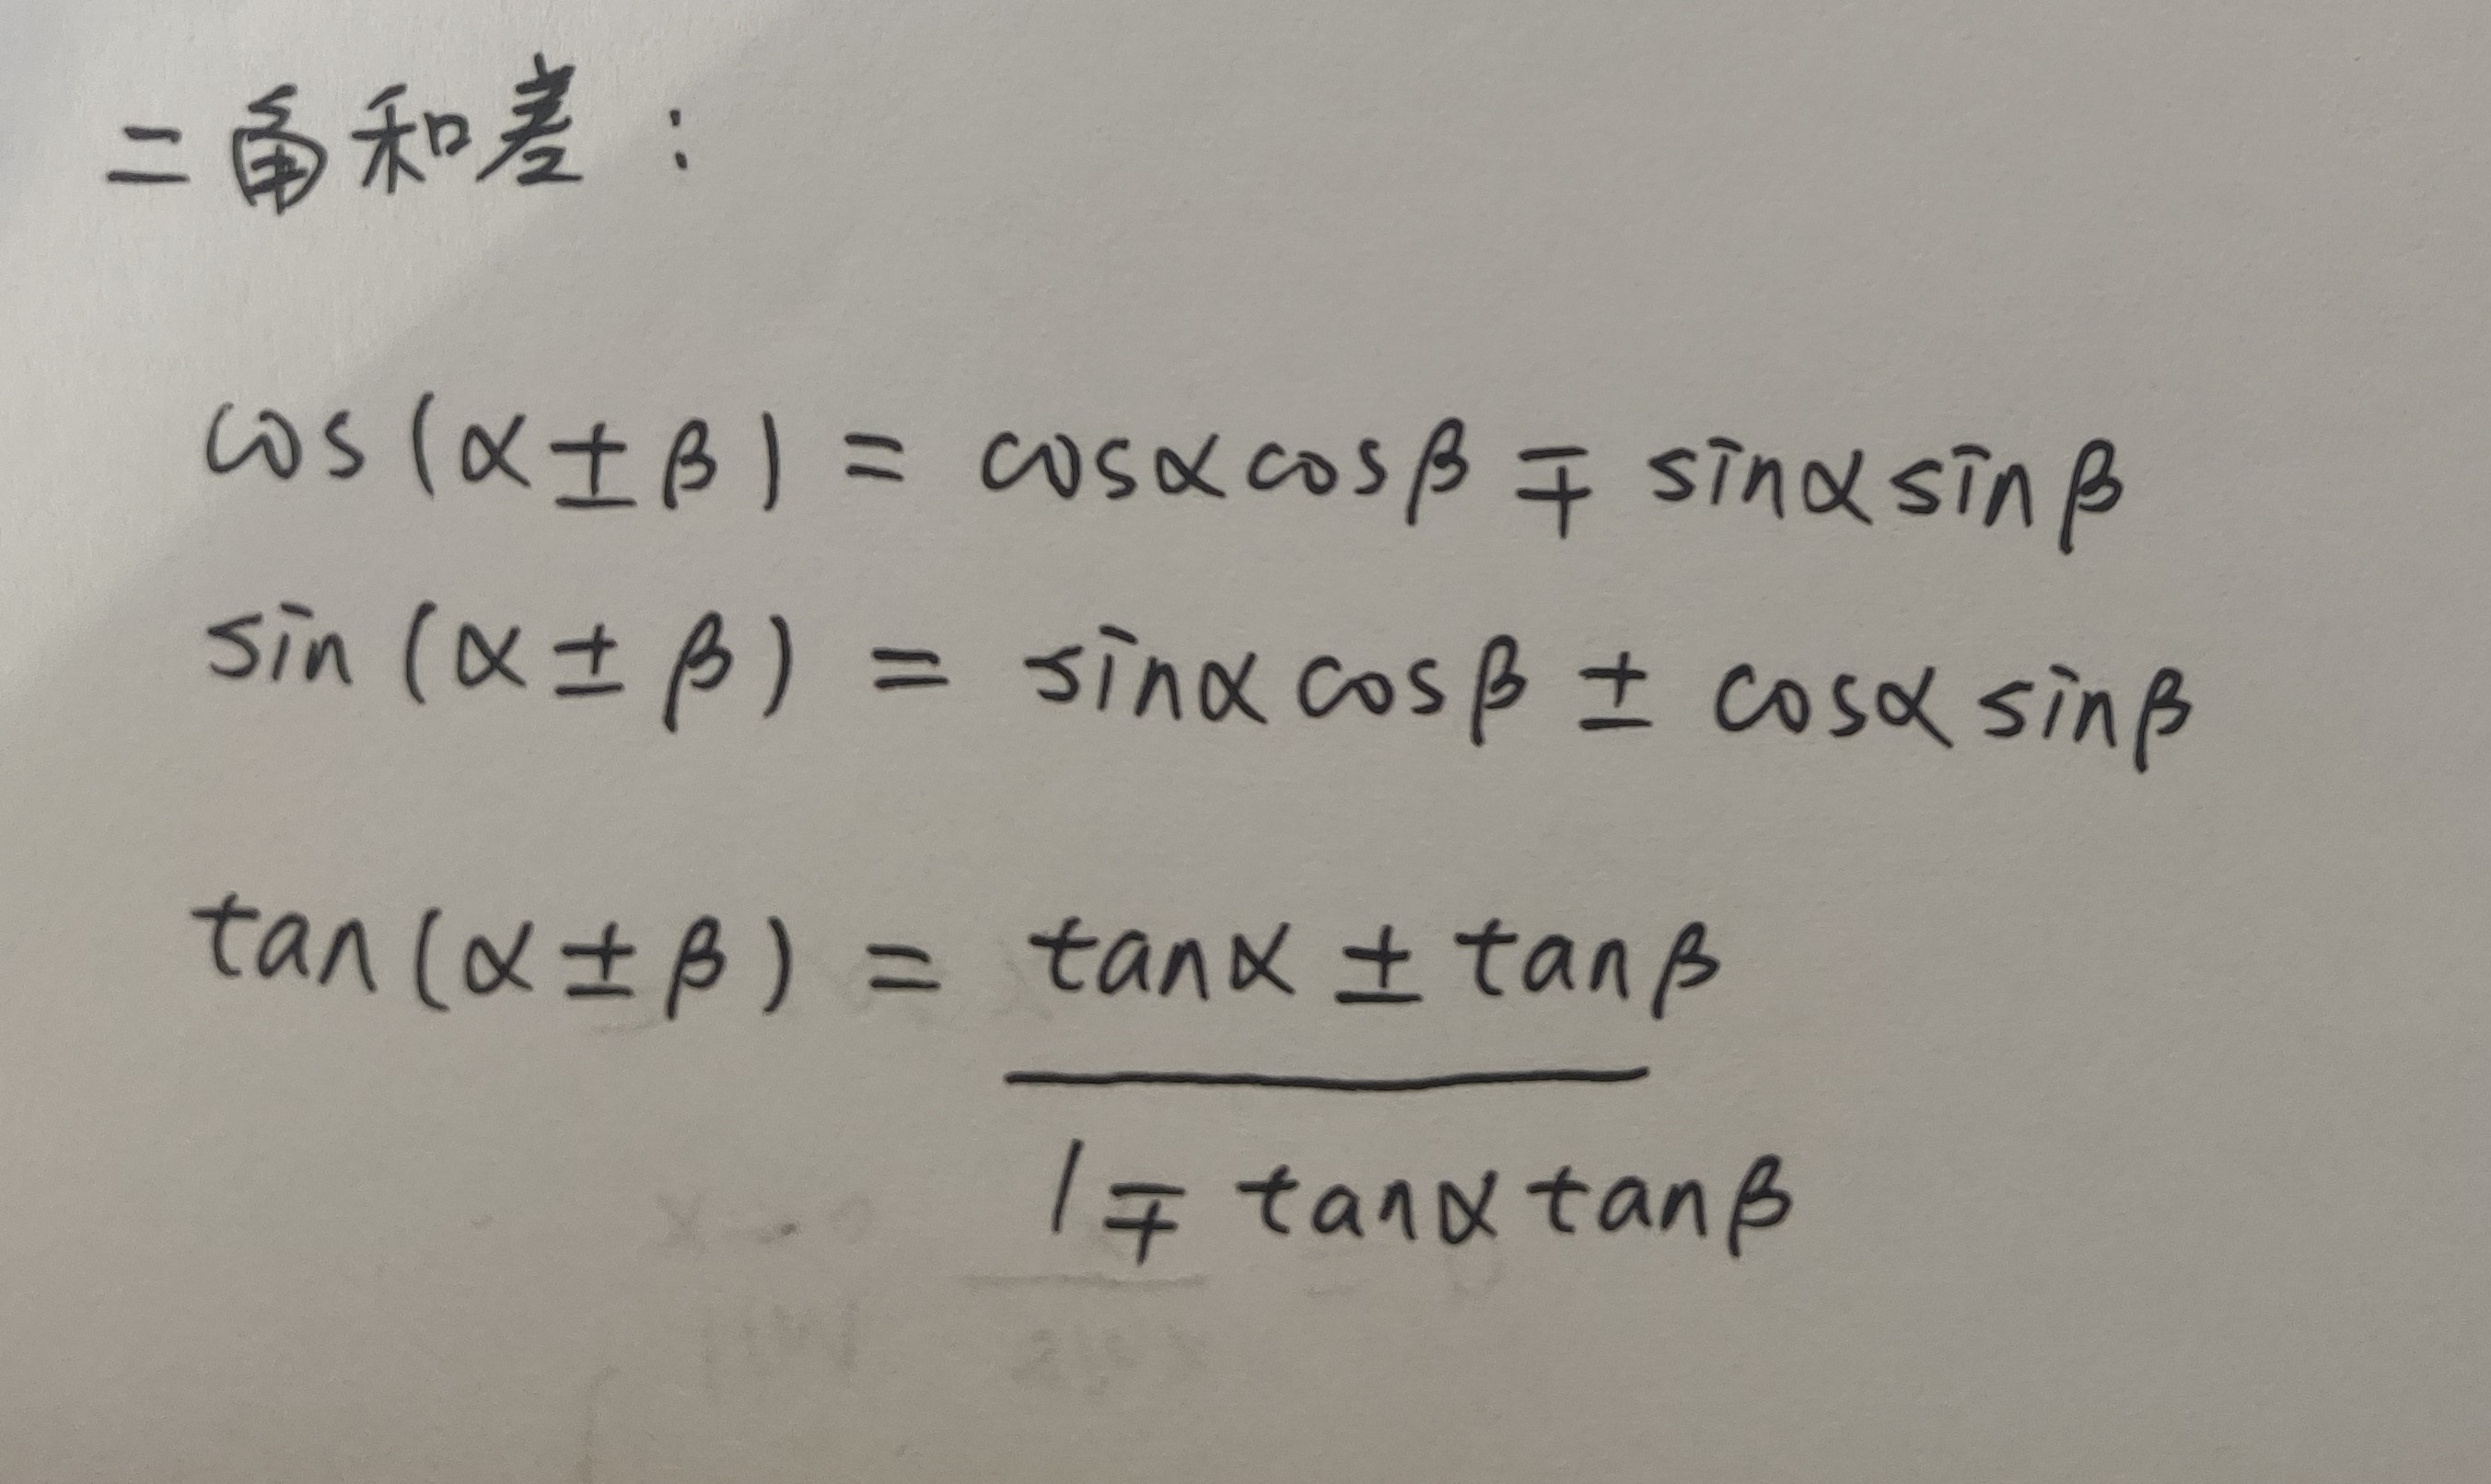 二角和差：
cos(α±β) = cosαcosβ ∓ sinαsinβ
sin(α±β) = sinαcosβ ± cosαsinβ
tan(α±β) = tanα ± tanβ
1 ∓ tanαtanβ